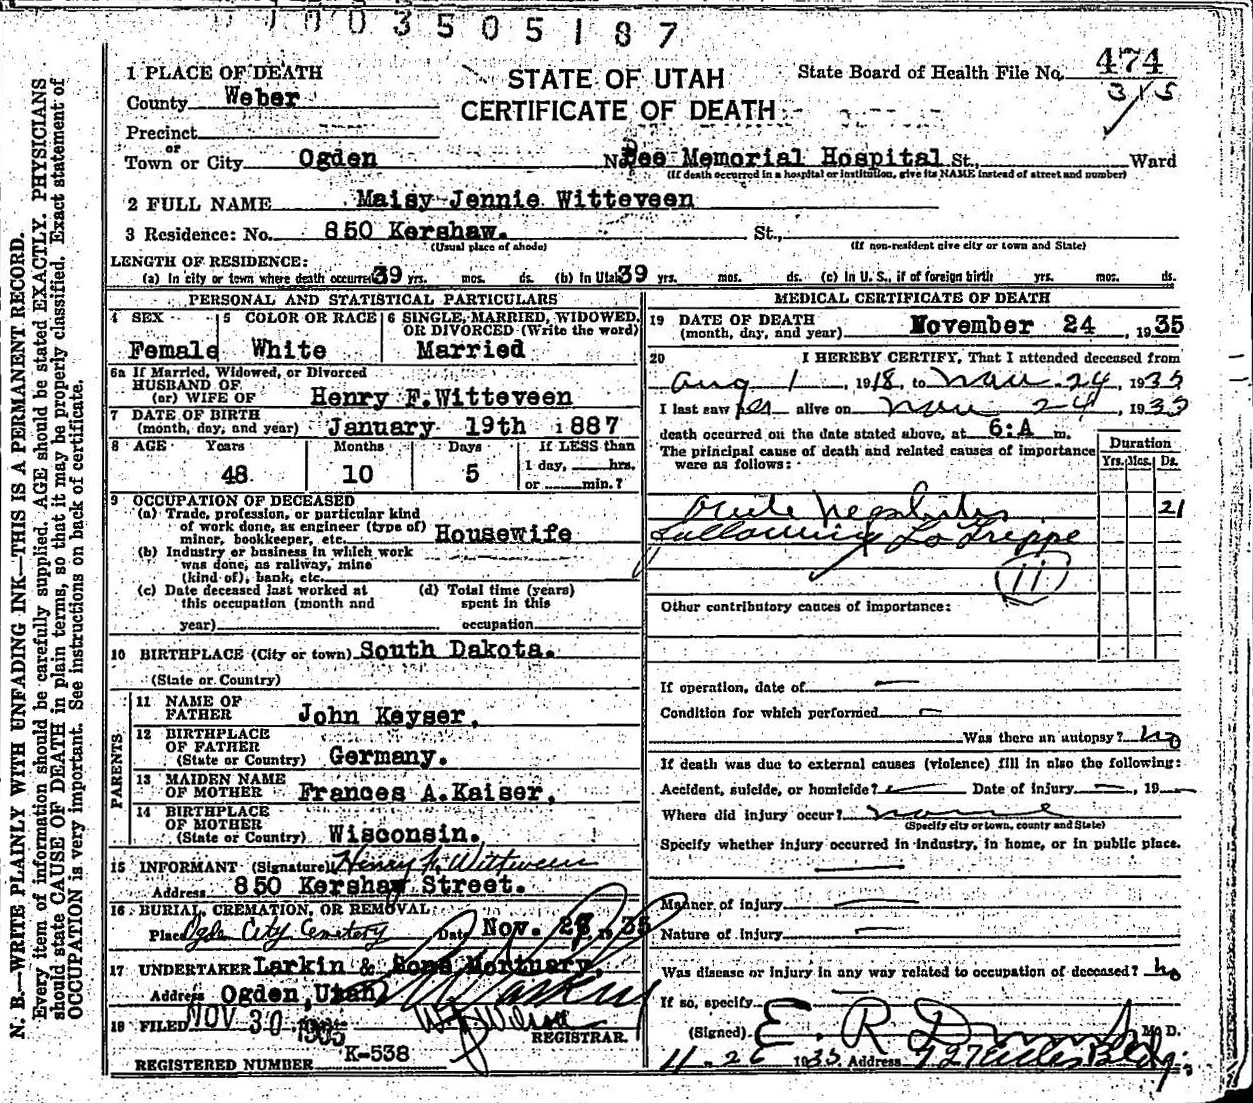 1003505187
1 PLACE OF DEATH
STATE OF UTAH
CERTIFICATE OF DEATH
State Board of Health File No. 474
315
County Weber
Precinct
or
Town or City Ogden No. Dee Memorial Hospital St., Ward
(If death occurred in a hospital or institution, give its NAME instead of street and number)
2 FULL NAME Maisy Jennie Witteveen
3 Residence: No. 850 Kershaw. St.,
(Usual place of abode) (If non-resident give city or town and State)
LENGTH OF RESIDENCE:
(a) In city or town where death occurred 39 yrs. mos. ds. (b) In Utah 39 yrs. mos. ds. (c) In U. S., if of foreign birth yrs. mos. ds.
PERSONAL AND STATISTICAL PARTICULARS
4 SEX Female
5 COLOR OR RACE White
6 SINGLE, MARRIED, WIDOWED,
OR DIVORCED (Write the word)
Married
6a If Married, Widowed, or Divorced
HUSBAND OF
(or) WIFE OF Henry F. Witteveen
7 DATE OF BIRTH
(month, day, and year) January 19th 1887
8 AGE Years Months Days If LESS than
48 10 5 1 day, hrs.
or min.?
9 OCCUPATION OF DECEASED
(a) Trade, profession, or particular kind
of work done, as engineer (type of)
miner, bookkeeper, etc. Housewife
(b) Industry or business in which work
was done, as railway, mine
(kind of), bank, etc.
(c) Date deceased last worked at
this occupation (month and
year)
(d) Total time (years)
spent in this
occupation
10 BIRTHPLACE (City or town) South Dakota.
(State or Country)
PARENTS
11 NAME OF
FATHER John Keyser,
12 BIRTHPLACE
OF FATHER
(State or Country) Germany.
13 MAIDEN NAME
OF MOTHER Frances A. Kaiser,
14 BIRTHPLACE
OF MOTHER
(State or Country) Wisconsin.
15 INFORMANT (Signature) Henry F. Witteveen
Address 850 Kershaw Street.
16 BURIAL, CREMATION, OR REMOVAL:
Place Ogden City Cemetery Date Nov. 1935
17 UNDERTAKER Larkin & Sons Mortuary,
Address Ogden, Utah
18 FILED NOV 30 1935
REGISTRAR.
REGISTERED NUMBER K-538
MEDICAL CERTIFICATE OF DEATH
19 DATE OF DEATH
(month, day, and year) November 24, 1935
20 I HEREBY CERTIFY, That I attended deceased from
Aug 1, 1918, to Nov. 24, 1935
I last saw her alive on Nov 24, 1935
death occurred on the date stated above, at 6:A m.
The principal cause of death and related causes of importance
were as follows:
Duration
Yrs. Mos. Ds.
Acute Nephritis 21
following La Grippe
(11)
Other contributory causes of importance:
If operation, date of —
Condition for which performed —
Was there an autopsy? no
If death was due to external causes (violence) fill in also the following:
Accident, suicide, or homicide? — Date of injury —, 19
Where did injury occur? none
(Specify city or town, county and State)
Specify whether injury occurred in industry, in home, or in public place.
—
Manner of injury —
Nature of injury —
Was disease or injury in any way related to occupation of deceased? no
If so, specify —
(Signed) E. R. M. D.
11-26 1935 Address Bldg.
N. B.—WRITE PLAINLY WITH UNFADING INK—THIS IS A PERMANENT RECORD.
Every item of information should be carefully supplied. AGE should be stated EXACTLY. PHYSICIANS
should state CAUSE OF DEATH in plain terms, so that it may be properly classified. Exact statement of
OCCUPATION is very important. See instructions on back of certificate.